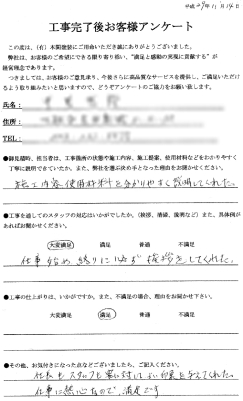 平成29年11月14日
工事完了後お客様アンケート
この度は、(有)木岡建装にご用命いただき誠にありがとうございました。
弊社は、お客様のご希望にできる限り寄り添い、“満足と感動の実現に貢献する”が
経営理念であります。
つきましては、お客様のご意見承り、今後さらに高品質なサービスを提供し、ご満足いただけ
るよう取り組みたいと思いますので、どうぞアンケートのご協力をお願い致します。
氏名:
住所:
TEL:
●御見積時、担当者は、工事箇所の状態や施工内容、施工提案、使用材料などをわかりやすく
丁寧に説明できていたか。また、弊社を選ぶ決め手となった理由をお聞かせください。
施工内容、使用材料と分かりやすく説明してくれた。
●工事を通してのスタッフの対応はいかがでしたか。(挨拶、清掃、服装など)また、具体例が
あればお聞かせください。
大変満足 満足 普通 不満足
仕事始め、終りに必ず挨拶をしてくれた。
●工事の仕上がりは、いかがですか。また、不満足の場合、理由をお聞かせ下さい。
大変満足 満足 普通 不満足
●その他、お気付きになった点などございましたら、ご記入ください。
社長もスタッフも
印象を与えてくれた。
仕事に熱心なので、満足です